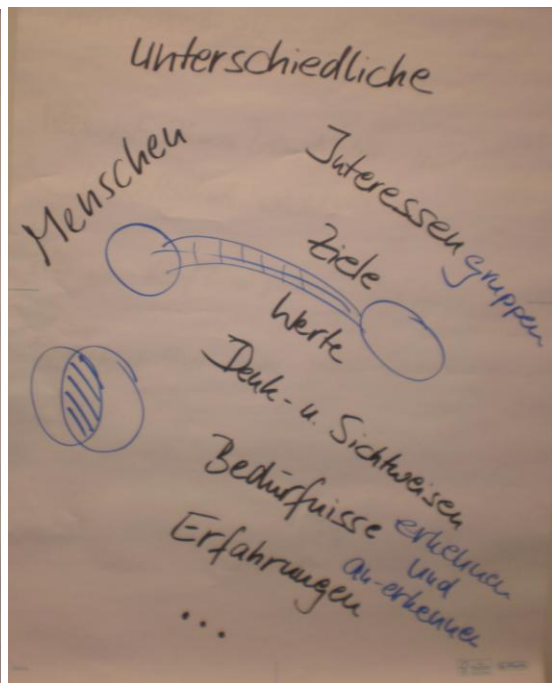 unterschiedliche
Menschen
Interessengruppen
Ziele
Werte
Denk- u. Sichtweisen
Bedürfnisse erkennen
und
an-erkennen
Erfahrungen
...